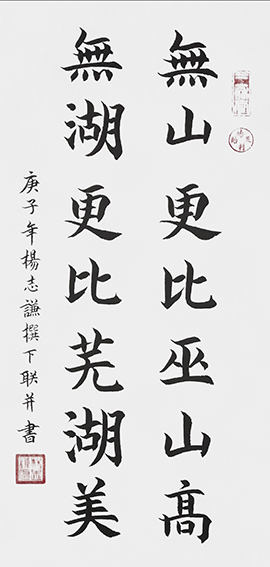 無山更比巫山高
無湖更比芜湖美
庚子年楊志謙撰下联并書